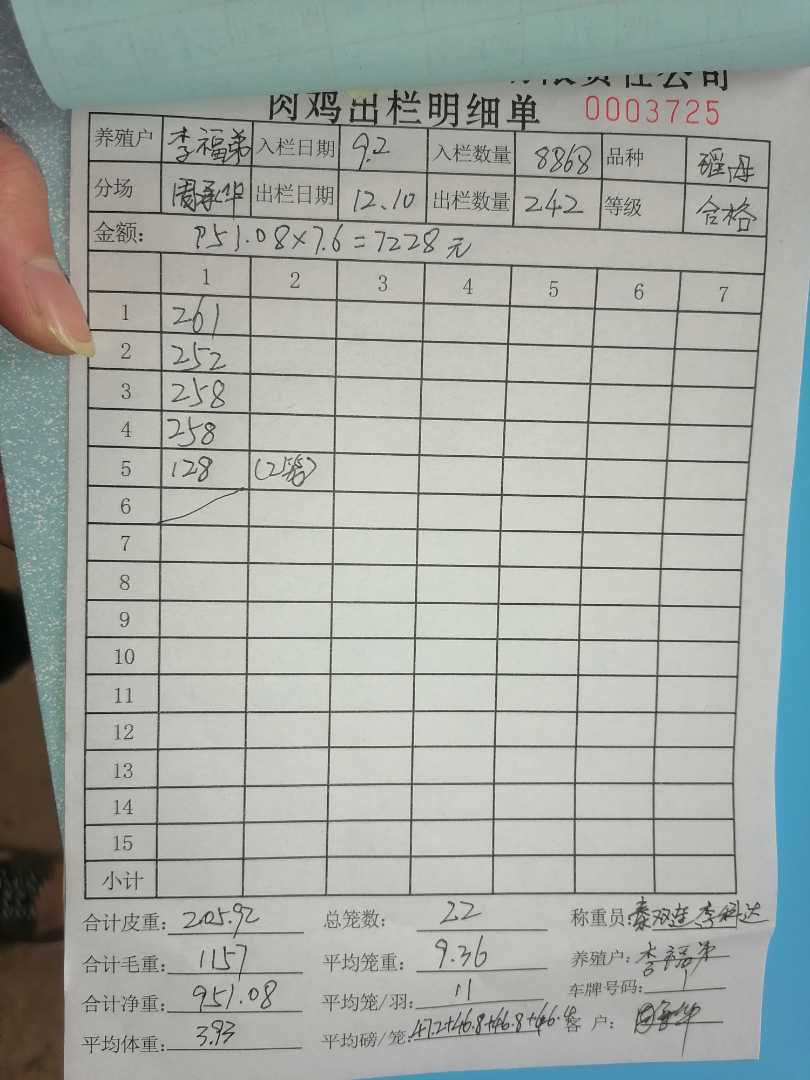 有限责任公司
肉鸡出栏明细单 0003725
养殖户 李福弟 入栏日期 9.2 入栏数量 8868 品种 瑶母
分场 周承华 出栏日期 12.10 出栏数量 242 等级 合格
金额： 951.08×7.6=7228元
1 2 3 4 5 6 7
1 261
2 252
3 258
4 258
5 128 (2笼)
6
7
8
9
10
11
12
13
14
15
小计
合计皮重: 205.92 总笼数: 22 称重员:
合计毛重: 1157 平均笼重: 9.36 养殖户: 李福弟
合计净重: 951.08 平均笼/羽: 11 车牌号码:
平均体重: 3.93 平均磅/笼: 47.2+46.8+46.8+46.4 客 户: